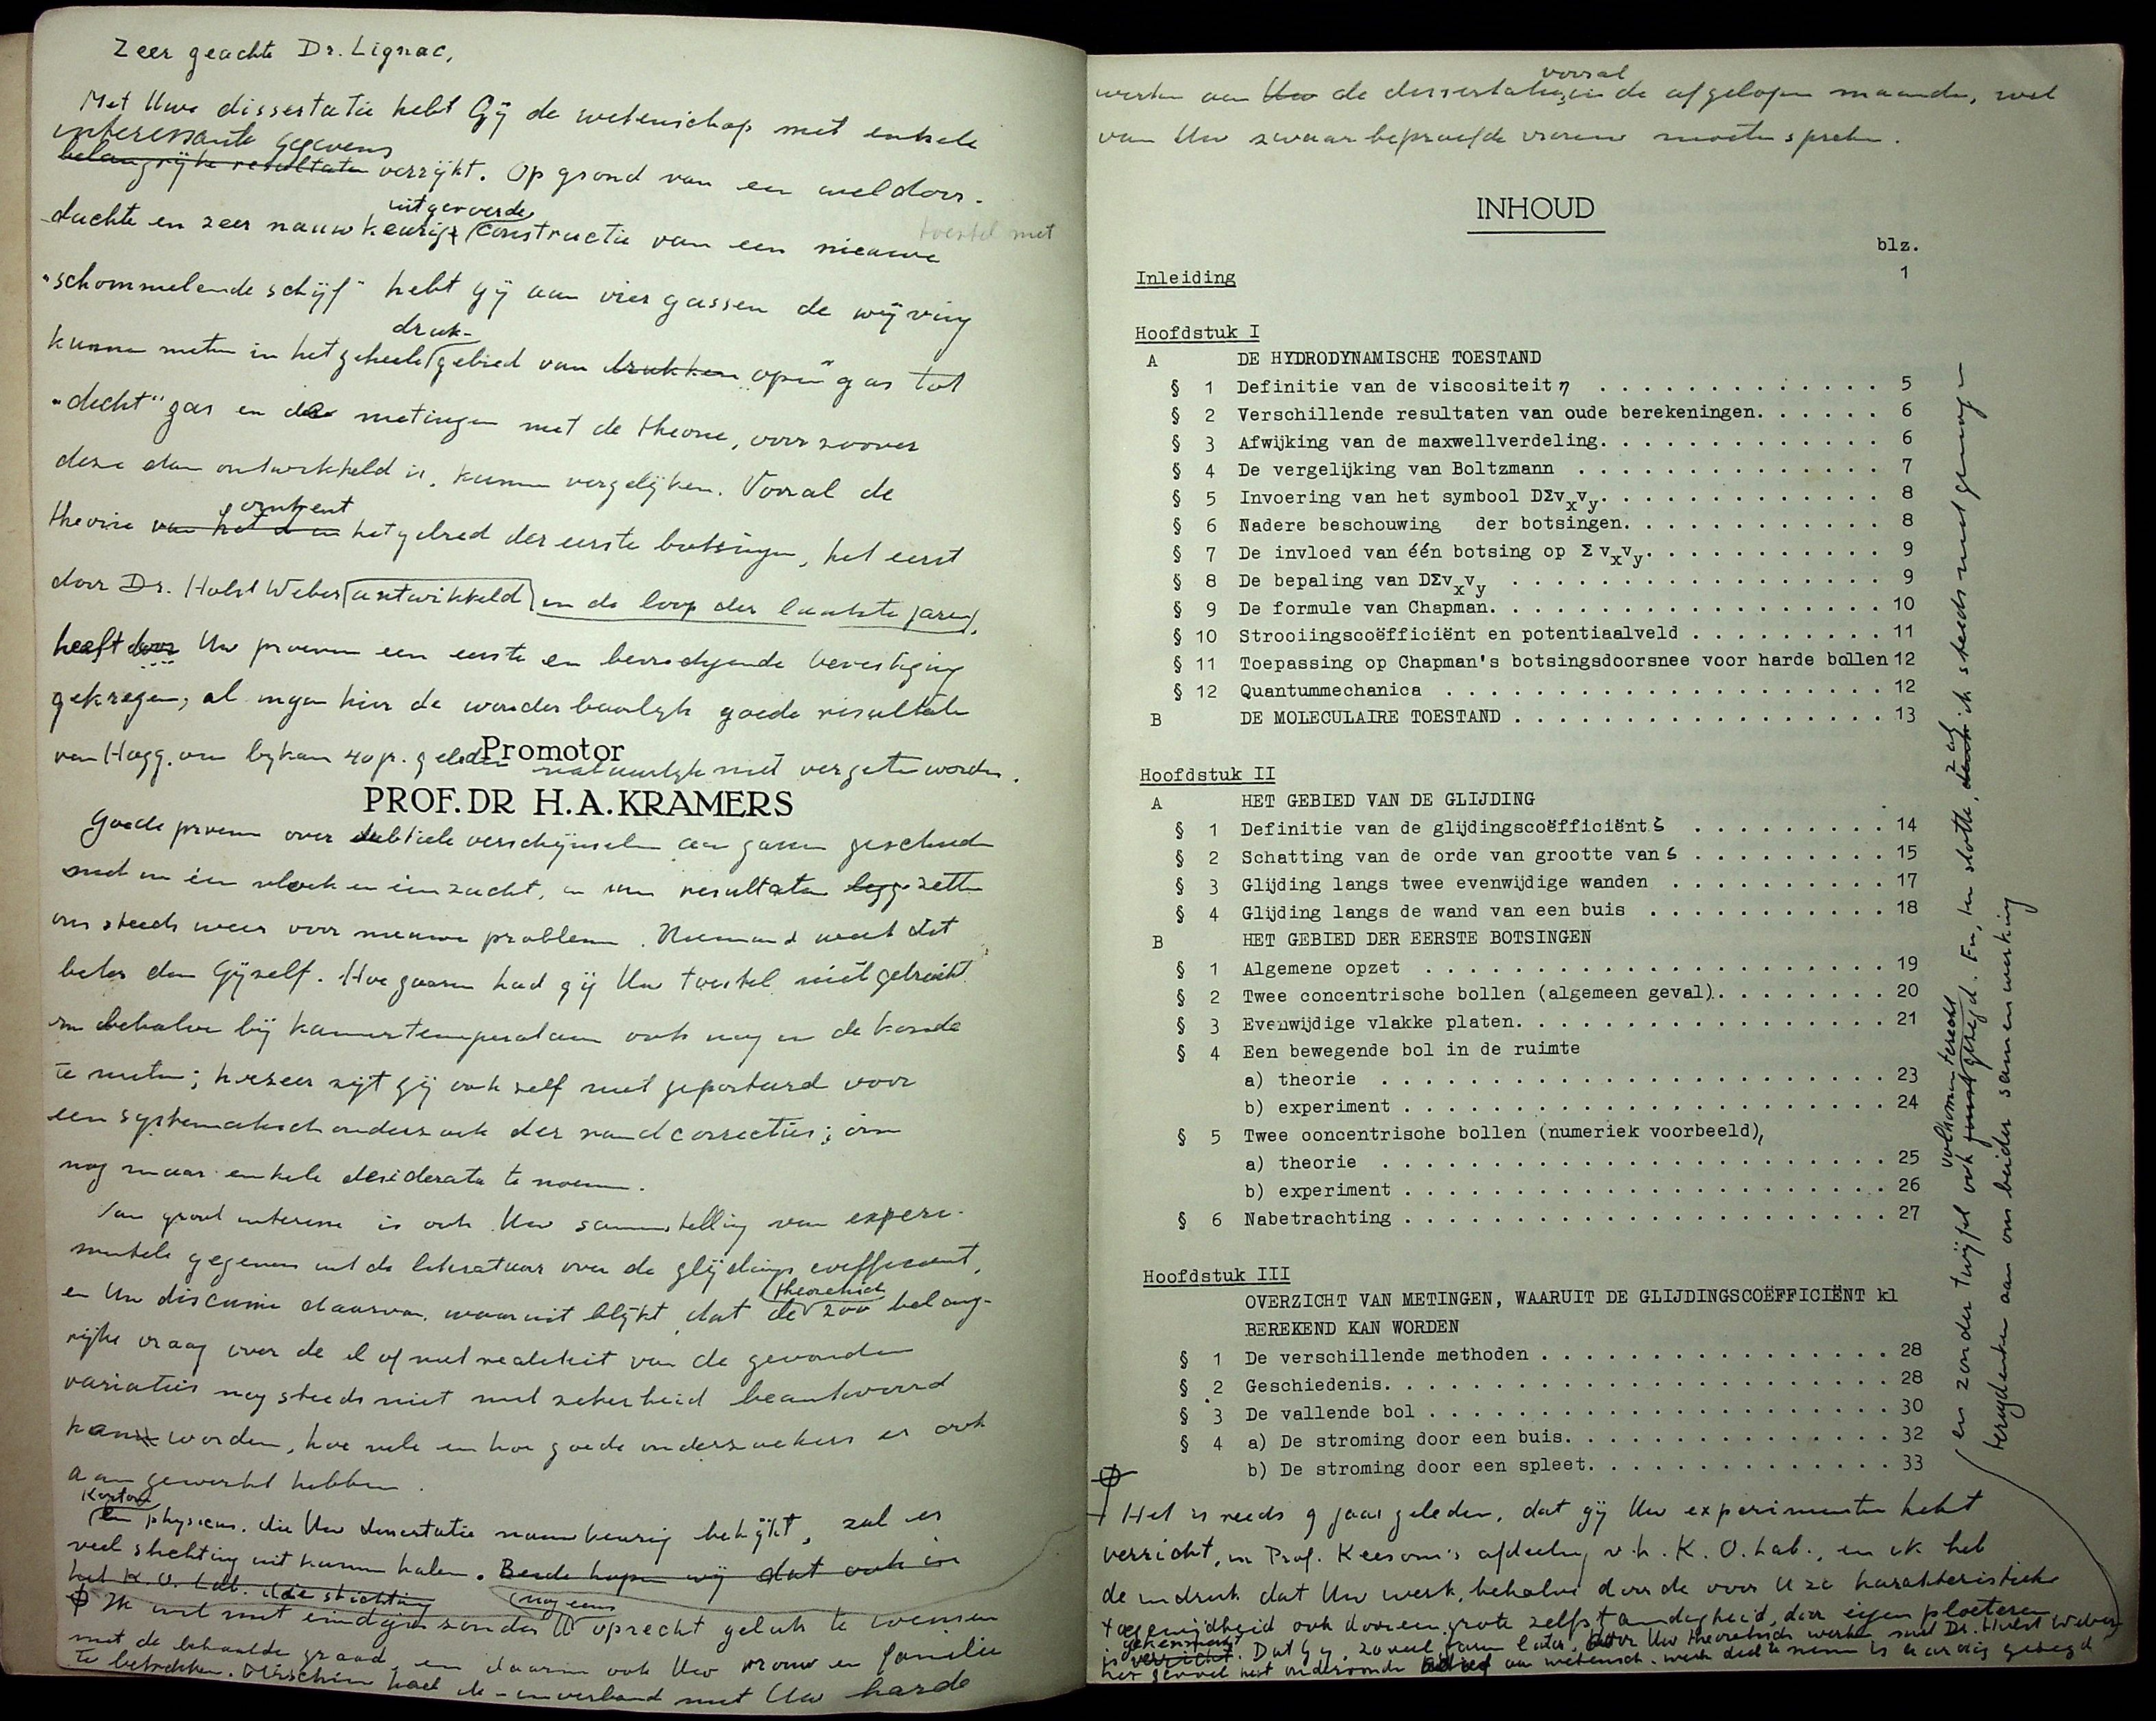 Zeer geachte Dr. Lignac,
Met Uwe dissertatie hebt Gij de wetenschap met enkele
interessante gegevens
belangrijke resultaten verrijkt. Op grond van een weldoor-
uitgevoerde
dachte en zeer nauwkeurige constructie van een nieuwe
toestel met
"schommelende schijf" hebt gij aan vier gassen de wrijving
druk-
kunnen meten in het geheele gebied van drukken "open" gas tot
"dicht" gas en de metingen met de theorie, voor zoover
deze dan ontwikkeld is, kunnen vergelijken. Vooral de
omtrent
theorie van het den het gebied der eerste botsingen, het eerst
door Dr. Holst Weber ontwikkeld in de loop der laatste jaren,
heeft door Uw proeven een eerste en bevredigende bevestiging
gekregen, al mogen hier de wonderbaarlijk goede resultaten
van Hogg. van bijkans 40 jr. geleden natuurlijk niet vergeten worden.
Promotor
PROF. DR H. A. KRAMERS
Goede proeven over subtiele verschijnselen aan gassen geschieden
niet in één vloek en een zucht, en hun resultaten legg zetten
ons steeds weer voor nieuwe problemen. Niemand weet dat
beter dan Gijzelf. Hoe gaarne had gij Uw toestel niet gebruikt
om behalve bij kamertemperatuur ook nog in de koude
te meten; hoezeer zijt gij ook zelf niet geporteerd voor
een systematisch onderzoek der randcorrecties; om
nog maar enkele desiderata te noemen.
Van groot interesse is ook Uw samenstelling van experi-
mentele gegevens uit de literatuur over de glijdingscoefficient,
theoretisch
en Uw discussie daarvan, waaruit blijkt dat de zoo belang-
rijke vraag over de al of niet realiteit van de gevonden
variaties nog steeds niet met zekerheid beantwoord
kan worden, hoe vele en hoe goede onderzoekers er ook
aan gewerkt hebben.
Kortom
Een physicus, die Uw dissertatie nauwkeurig bekijkt, zal er
veel stichting uit kunnen halen. Beide hopen wij dat ook in
het K.O. Lab. die stichting
nog eens
Ik wil niet eindigen zonder U oprecht geluk te wensen
met de behaalde graad, en daarin ook Uw vrouw en familie
te betrekken. Misschien had ik - in verband met Uw harde
vooral
werken aan Uw de dissertatie, in de afgelopen maanden, wel
van Uw zwaar beproefde vrouw moeten spreken.
INHOUD
blz.
Inleiding 1
Hoofdstuk I
A DE HYDRODYNAMISCHE TOESTAND
§ 1 Definitie van de viscositeit η . . . . . . . . . . . . . . 5
§ 2 Verschillende resultaten van oude berekeningen. . . . . . 6
§ 3 Afwijking van de maxwellverdeling. . . . . . . . . . . . . 6
§ 4 De vergelijking van Boltzmann . . . . . . . . . . . . . . 7
§ 5 Invoering van het symbool DΣvxvy. . . . . . . . . . . . . 8
§ 6 Nadere beschouwing der botsingen. . . . . . . . . . . . 8
§ 7 De invloed van één botsing op Σ vxvy. . . . . . . . . . . 9
§ 8 De bepaling van DΣvxvy . . . . . . . . . . . . . . . . . 9
§ 9 De formule van Chapman. . . . . . . . . . . . . . . . . . 10
§ 10 Strooiingscoëfficiënt en potentiaalveld . . . . . . . . . 11
§ 11 Toepassing op Chapman's botsingsdoorsnee voor harde bollen 12
§ 12 Quantummechanica . . . . . . . . . . . . . . . . . . . . 12
B DE MOLECULAIRE TOESTAND . . . . . . . . . . . . . . . . . 13
Hoofdstuk II
A HET GEBIED VAN DE GLIJDING
§ 1 Definitie van de glijdingscoëfficiënt ζ . . . . . . . . . 14
§ 2 Schatting van de orde van grootte van ζ . . . . . . . . . 15
§ 3 Glijding langs twee evenwijdige wanden . . . . . . . . . . 17
§ 4 Glijding langs de wand van een buis . . . . . . . . . . . 18
B HET GEBIED DER EERSTE BOTSINGEN
§ 1 Algemene opzet . . . . . . . . . . . . . . . . . . . . . 19
§ 2 Twee concentrische bollen (algemeen geval). . . . . . . . 20
§ 3 Evenwijdige vlakke platen. . . . . . . . . . . . . . . . . 21
§ 4 Een bewegende bol in de ruimte
a) theorie . . . . . . . . . . . . . . . . . . . . . . . 23
b) experiment . . . . . . . . . . . . . . . . . . . . . . 24
§ 5 Twee concentrische bollen (numeriek voorbeeld),
a) theorie . . . . . . . . . . . . . . . . . . . . . . . 25
b) experiment . . . . . . . . . . . . . . . . . . . . . . 26
§ 6 Nabetrachting . . . . . . . . . . . . . . . . . . . . . . 27
Hoofdstuk III
OVERZICHT VAN METINGEN, WAARUIT DE GLIJDINGSCOËFFICIËNT kl
BEREKEND KAN WORDEN
§ 1 De verschillende methoden . . . . . . . . . . . . . . . . 28
§ 2 Geschiedenis. . . . . . . . . . . . . . . . . . . . . . . 28
§ 3 De vallende bol . . . . . . . . . . . . . . . . . . . . . 30
§ 4 a) De stroming door een buis. . . . . . . . . . . . . . . 32
b) De stroming door een spleet. . . . . . . . . . . . . . 33
Het is reeds 9 jaar geleden, dat gij Uw experimenten hebt
verricht, in Prof. Keesom's afdeeling v.h. K.O. Lab., en ik heb
de indruk dat Uw werk, behalve door de voor U zo karakteristieke
toegewijdheid ook door een grote zelfstandigheid, door eigen ploeteren
gekenmerkt
is verricht. Dat Gij, zoveel jaren later, door Uw theoretisch werken met Dr. Holst Weber
het gevoel hebt ondervonden actief aan wetensch. werk deel te nemen is aardig gezegd
volkomen terecht
zag
en zonder twijfel ook juist gezegd. En, ten slotte, denk ik steeds met genoegen
terugdenken aan ons beider samenwerking